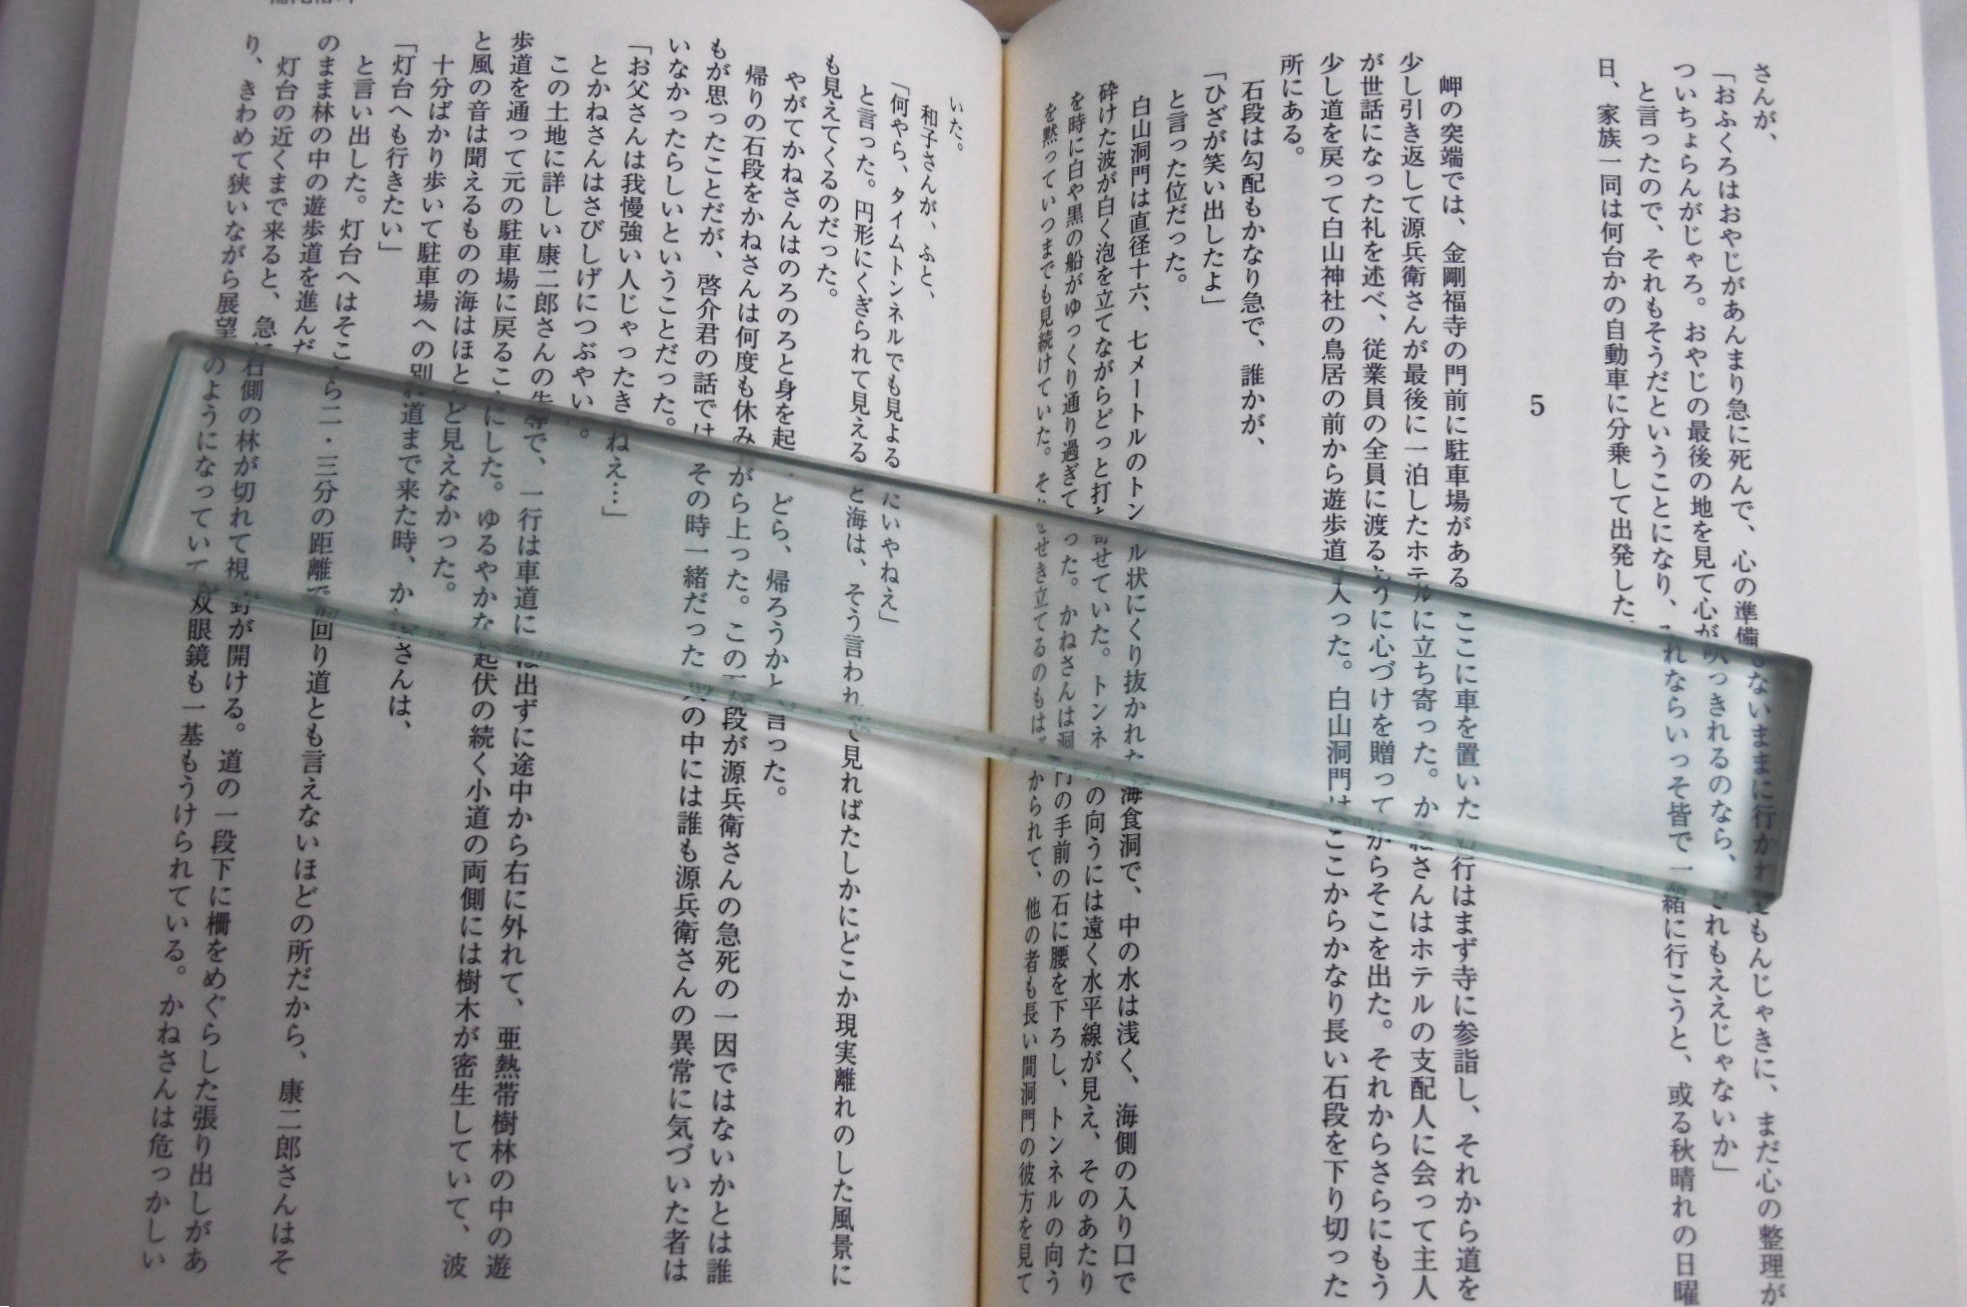 さんが、
「おふくろはおやじがあんまり急に死んで、心の準備もないままに行かれてもんじゃきに、まだ心の整理が
ついちょらんがじゃろ。おやじの最後の地を見て心が吹っきれるのなら、それもええじゃないか」
と言ったので、それもそうだということになり、それならいっそ皆で一緒に行こうと、或る秋晴れの日曜
日、家族一同は何台かの自動車に分乗して出発した。
5
岬の突端では、金剛福寺の門前に駐車場がある。ここに車を置いた一行はまず寺に参詣し、それから道を
少し引き返して源兵衛さんが最後に一泊したホテルに立ち寄った。かねさんはホテルの支配人に会って主人
が世話になった礼を述べ、従業員の全員に渡るように心づけを贈ってからそこを出た。それからさらにもう
少し道を戻って白山神社の鳥居の前から遊歩道に入った。白山洞門はここからかなり長い石段を下り切った
所にある。
石段は勾配もかなり急で、誰かが、
「ひざが笑い出したよ」
と言った位だった。
白山洞門は直径十六、七メートルのトンネル状にくり抜かれた海食洞で、中の水は浅く、海側の入り口で
砕けた波が白く泡を立てながらどっと打ち寄せていた。トンネルの向うには遠く水平線が見え、そのあたり
を時に白や黒の船がゆっくり通り過ぎて行った。かねさんは洞門の手前の石に腰を下ろし、トンネルの向う
を黙っていつまでも見続けていた。それをせき立てるのもはばかられて、他の者も長い間洞門の彼方を見て
いた。
和子さんが、ふと、
「何やら、タイムトンネルでも見よるみたいやねえ」
と言った。円形にくぎられて見える空と海は、そう言われて見ればたしかにどこか現実離れのした風景に
も見えてくるのだった。
やがてかねさんはのろのろと身を起し、どら、帰ろうかと言った。
帰りの石段をかねさんは何度も休みながら上った。この石段が源兵衛さんの急死の一因ではないかとは誰
もが思ったことだが、啓介君の話では、その時一緒だった人の中には誰も源兵衛さんの異常に気づいた者は
いなかったらしいということだった。
「お父さんは我慢強い人じゃったきにねえ…」
とかねさんはさびしげにつぶやいた。
この土地に詳しい康二郎さんの先導で、一行は車道には出ずに途中から右に外れて、亜熱帯樹林の中の遊
歩道を通って元の駐車場に戻ることにした。ゆるやかな起伏の続く小道の両側には樹木が密生していて、波
と風の音は聞えるものの海はほとんど見えなかった。
十分ばかり歩いて駐車場への別れ道まで来た時、かねさんは、
「灯台へも行きたい」
と言い出した。灯台へはそこから二・三分の距離で、回り道とも言えないほどの所だから、康二郎さんはそ
のまま林の中の遊歩道を進んだ。
灯台の近くまで来ると、急に右側の林が切れて視野が開ける。道の一段下に柵をめぐらした張り出しがあ
り、きわめて狭いながら展望台のようになっていて双眼鏡も一基もうけられている。かねさんは危っかしい